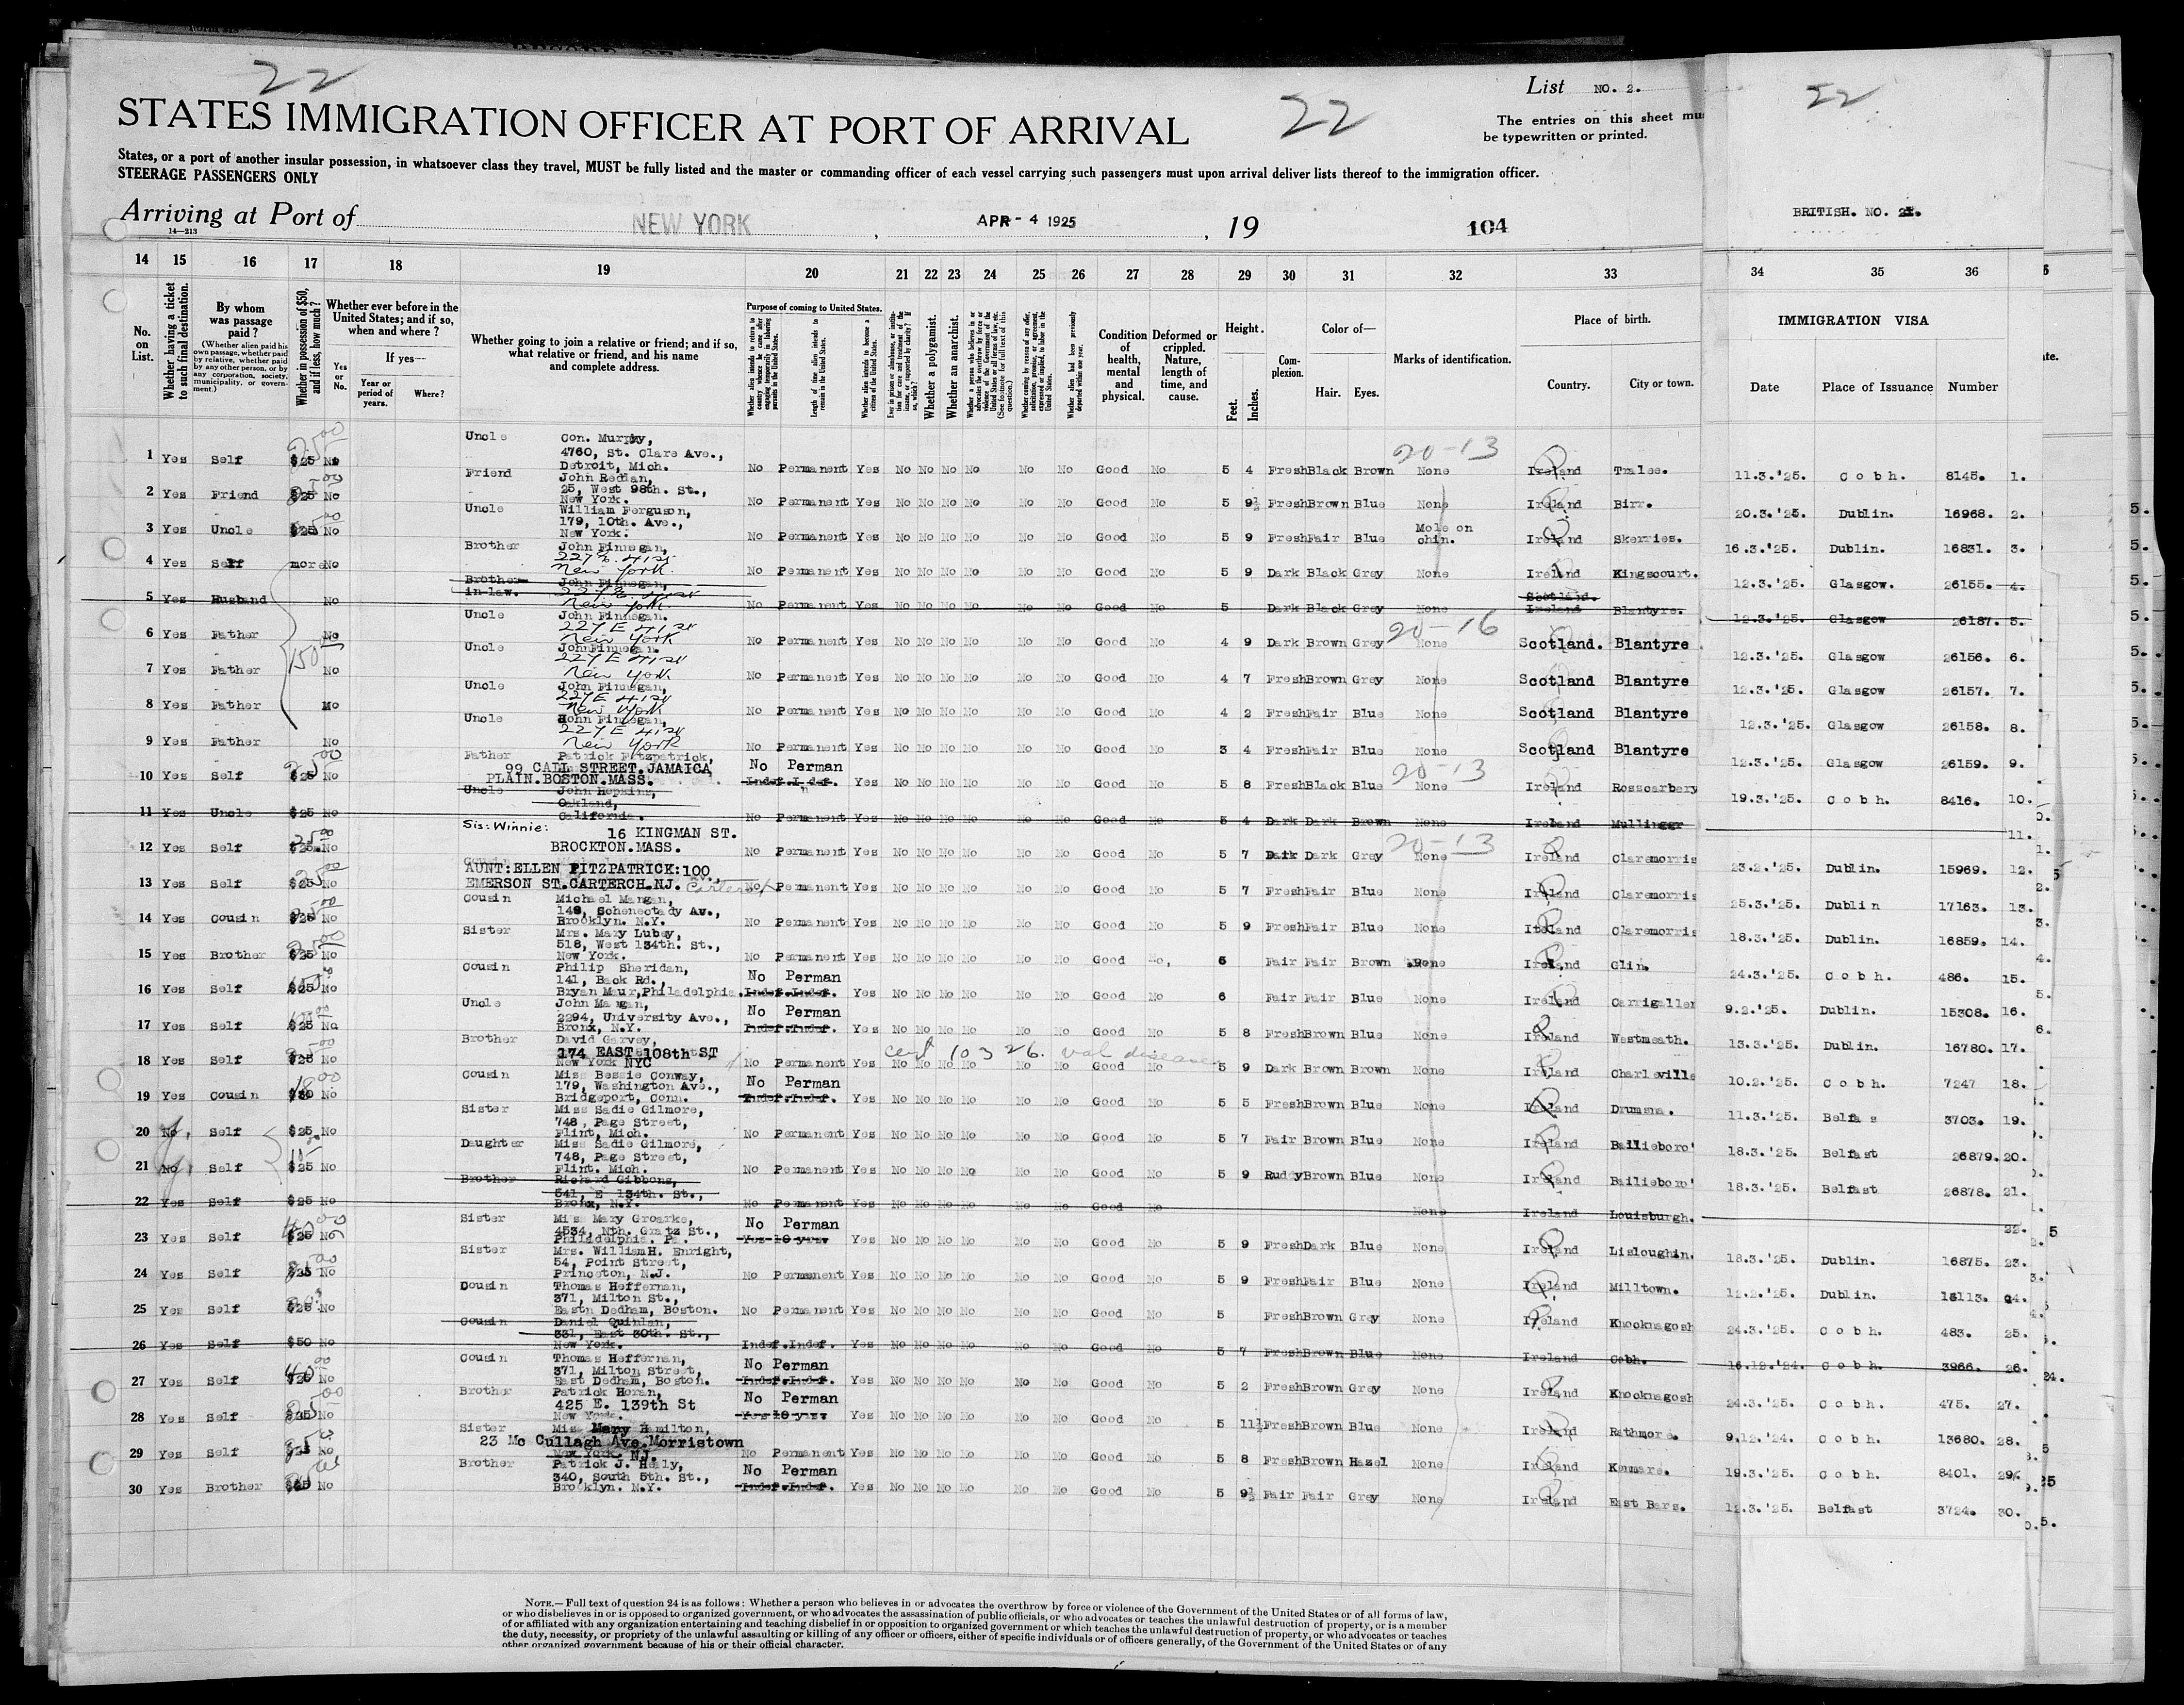 22
22
22
List NO. 2.
STATES IMMIGRATION OFFICER AT PORT OF ARRIVAL
The entries on this sheet mus
be typewritten or printed.
States, or a port of another insular possession, in whatsoever class they travel, MUST be fully listed and the master or commanding officer of each vessel carrying such passengers must upon arrival deliver lists thereof to the immigration officer.
STEERAGE PASSENGERS ONLY
Arriving at Port of NEW YORK, APR - 4 1925, 19 104
14—213
BRITISH. NO.
14 15 16 17 18 19 20 21 22 23 24 25 26 27 28 29 30 31 32 33 34 35 36
No. on List.
Whether having a ticket to such final destination.
By whom was passage paid?
(Whether alien paid his own passage, whether paid by relative, whether paid by any other person, or by any corporation, society, municipality, or government.)
Whether in possession of $50, and if less, how much?
Whether ever before in the United States; and if so, when and where?
Yes or No.
If yes—
Year or period of years.
Where?
Whether going to join a relative or friend; and if so, what relative or friend, and his name and complete address.
Purpose of coming to United States.
Whether alien intends to return to country whence he came after engaging temporarily in laboring pursuits in the United States.
Length of time alien intends to remain in the United States.
Whether alien intends to become a citizen of the United States.
Ever in prison or almshouse, or institution for care and treatment of the insane, or supported by charity? If so, which?
Whether a polygamist.
Whether an anarchist.
Whether coming by reason of any offer, solicitation, promise, or agreement, expressed or implied, to labor in the United States.
Whether alien had been previously deported within one year.
Condition of health, mental and physical.
Deformed or crippled. Nature, length of time, and cause.
Height. Feet. Inches.
Complexion.
Color of— Hair. Eyes.
Marks of identification.
Place of birth. Country. City or town.
IMMIGRATION VISA
Date Place of Issuance Number
1 Yes Self $25 No Uncle Con. Murphy, 4760, St. Clare Ave., Detroit, Mich. No Permanent Yes No No No No No No Good No 5 4 Fresh Black Brown None 20-13 Ireland Tralee. 11.3.'25. Cobh. 8145. 1.
2 Yes Friend $25 No Friend John Reddan, 25, West 98th. St., New York. No Permanent Yes No No No No No No Good No 5 9½ Fresh Brown Blue None Ireland Birr. 20.3.'25. Dublin. 16968. 2.
3 Yes Uncle $25 No Uncle William Ferguson, 179, 10th. Ave., New York. No Permanent Yes No No No No No No Good No 5 9 Fresh Fair Blue Mole on chin. Ireland Skerries. 16.3.'25. Dublin. 16831. 3.
4 Yes Self more No Brother John Finnegan, 227 E. 41 St New York. No Permanent Yes No No No No No No Good No 5 9 Dark Black Grey None Ireland Kingscourt. 12.3.'25. Glasgow. 26155. 4.
5 Yes Husband No Brother-in-law. John Finnegan, 227 E. 41 St New York No Permanent Yes No No No No No No Good No 5 Dark Black Grey None Scotland. Ireland Blantyre. 12.3.'25. Glasgow 26187. 5.
6 Yes Father No Uncle John Finnegan. 227 E 41 St New York No Permanent Yes No No No No No No Good No 4 9 Dark Brown Grey None 20-16 Scotland. Blantyre 12.3.'25. Glasgow 26156. 6.
7 Yes Father 150 No Uncle John Finnegan. 227 E 41 St New York No Permanent Yes No No No No No No Good No 4 7 Fresh Brown Grey None Scotland Blantyre 12.3.'25. Glasgow 26157. 7.
8 Yes Father No Uncle John Finnegan, 227 E 41 St New York No Permanent Yes No No No No No No Good No 4 2 Fresh Fair Blue None Scotland Blantyre 12.3.'25. Glasgow 26158. 8.
9 Yes Father No Uncle John Finnegan, 227 E 41 St New York No Permanent Yes No No No No No No Good No 3 4 Fresh Fair Blue None Scotland Blantyre 12.3.'25. Glasgow 26159. 9.
10 Yes Self $25 No Father Patrick Fitzpatrick, 99 CALL STREET. JAMAICA PLAIN. BOSTON. MASS. No Perman Indef. Indef. Yes No No No No No No Good No 5 8 Fresh Black Blue None 20-13 Ireland Rosscarbery 19.3.'25. Cobh. 8416. 10.
11 Yes Uncle $25 No Uncle John Hopkins, Oakland, California. No Permanent Yes No No No No No No Good No 5 4 Dark Dark Brown None Ireland Mullingar 11.
12 Yes Self $25. No Sis: Winnie: 16 KINGMAN ST. BROCKTON. MASS. No Permanent Yes No No No No No No Good No 5 7 Dark Dark Grey None 20-13 Ireland Claremorris 23.2.'25. Dublin. 15969. 12.
13 Yes Self $25 No AUNT: ELLEN FITZPATRICK: 100 EMERSON ST. CARTERCH. N.J. Carteret No Permanent Yes No No No No No No Good No 5 7 Fresh Fair Blue None Ireland Claremorris 25.3.'25. Dublin 17163. 13.
14 Yes Cousin $25 No Cousin Michael Mangan, 149, Schenectady Av., Brooklyn. N.Y. No Permanent Yes No No No No No No Good No 5 9 Fresh Fair Blue None Ireland Claremorris 18.3.'25. Dublin. 16859. 14.
15 Yes Brother $25 No Sister Mrs. Mary Lubey, 518, West 134th. St., New York. No Permanent Yes No No No No No No Good No, 6 Fair Fair Brown None Ireland Glin. 24.3.'25. Cobh. 486. 15.
16 Yes Self $25 No Cousin Philip Sheridan, 141, Back Rd., Bryan Maur, Philadelphia. No Perman Indef. Indef. Yes No No No No No No Good No 6 Fair Fair Blue None Ireland Carrigallen 9.2.'25. Dublin. 15308. 16.
17 Yes Self $25 No Uncle John Mangan, 2294, University Ave., Bronx, N.Y. No Perman Indef. Indef. Yes No No No No No No Good No 5 8 Fresh Brown Blue None Ireland Westmeath. 13.3.'25. Dublin. 16780. 17.
18 Yes Self $25 No Brother David Garvey, 174 EAST 108th ST New York NYC No Permanent Yes No No No No No No Good No 5 9 Dark Brown Brown None Ireland Charleville 10.2.'25. Cobh. 7247 18.
19 Yes Cousin $30 No Cousin Miss Bessie Conway, 179, Washington Ave., Bridgeport, Conn. No Perman Indef. Indef. Yes No No No No No No Good No 5 5 Fresh Brown Blue None Ireland Drumsna. 11.3.'25. Belfas 3703. 19.
20 No, Self $25 No Sister Miss Sadie Gilmore, 748, Page Street, Flint, Mich. No Permanent Yes No No No No No No Good No 5 7 Fair Brown Blue None Ireland Bailieboro' 18.3.'25. Belfast 26879. 20.
21 No, Self $25 No Daughter Miss Sadie Gilmore, 748, Page Street, Flint. Mich. No Permanent Yes No No No No No No Good No 5 9 Ruddy Brown Blue None Ireland Bailieboro' 18.3.'25. Belfast 26878. 21.
22 Yes Self $25 No Brother Richard Gibbons, 541, E 134th. St., Bronx, N.Y. No Permanent Yes No No No No No No Good No None Ireland Louisburgh. 22.
23 Yes Self $25 No Sister Miss Mary Groarke, 4534, Nth. Gratz St., Philadelphia. Pa. No Perman Yes 10 yrs. Yes No No No No No No Good No 5 9 Fresh Dark Blue None Ireland Lisloughin. 18.3.'25. Dublin. 16875. 23.
24 Yes Self $25 No Sister Mrs. William H. Enright, 54, Point Street, Princeton, N.J. No Permanent Yes No No No No No No Good No 5 9 Fresh Fair Blue None Ireland Milltown. 12.2.'25. Dublin. 15113. 24.
25 Yes Self $25 No Cousin Thomas Heffernan, 371, Milton St., Eastn Dedham, Boston. No Permanent Yes No No No No No No Good No 5 Fresh Brown Grey None Ireland Knocknagosh 24.3.'25. Cobh. 483. 25.
26 Yes Self $50 No Cousin Daniel Quinlan, 331, East 30th. St., New York. Indef. Indef. Yes No No No No No No Good No 5 7 Fresh Brown Blue None Ireland Cobh. 16.12.'24. Cobh. 3966. 26.
27 Yes Self $20 No Cousin Thomas Heffernan, 371, Milton Street, East Dedham, Boston. No Perman Indef. Indef. Yes No No No No No No Good No 5 2 Fresh Brown Grey None Ireland Knocknagosh 24.3.'25. Cobh. 475. 27.
28 Yes Self $25 No Brother Patrick Horan, 425 E. 139th St New York. No Perman Yes 10 yrs. Yes No No No No No No Good No 5 11½ Fresh Brown Blue None Ireland Rathmore. 9.12.'24. Cobh. 13680. 28.
29 Yes Self $25 No Sister Miss Mary Hamilton, 23 Mc Cullagh Ave. Morristown New York. N.J. No Permanent Yes No No No No No No Good No 5 8 Fresh Brown Hazel None Ireland Kenmare. 19.3.'25. Cobh. 8401. 29.
30 Yes Brother $25 No Brother Patrick J. Healy, 340, South 5th. St., Brooklyn. N.Y. No Perman Indef. Indef. Yes No No No No No No Good No 5 9½ Fair Fair Grey None Ireland East Bars. 12.3.'25. Belfast 3724. 30.
NOTE.—Full text of question 24 is as follows: Whether a person who believes in or advocates the overthrow by force or violence of the Government of the United States or of all forms of law,
or who disbelieves in or is opposed to organized government, or who advocates the assassination of public officials, or who advocates or teaches the unlawful destruction of property, or is a member
of or affiliated with any organization entertaining and teaching disbelief in or opposition to organized government or which teaches the unlawful destruction of property, or who advocates or teaches
the duty, necessity, or propriety of the unlawful assaulting or killing of any officer or officers, either of specific individuals or of officers generally, of the Government of the United States or of any
other organized government because of his or their official character.